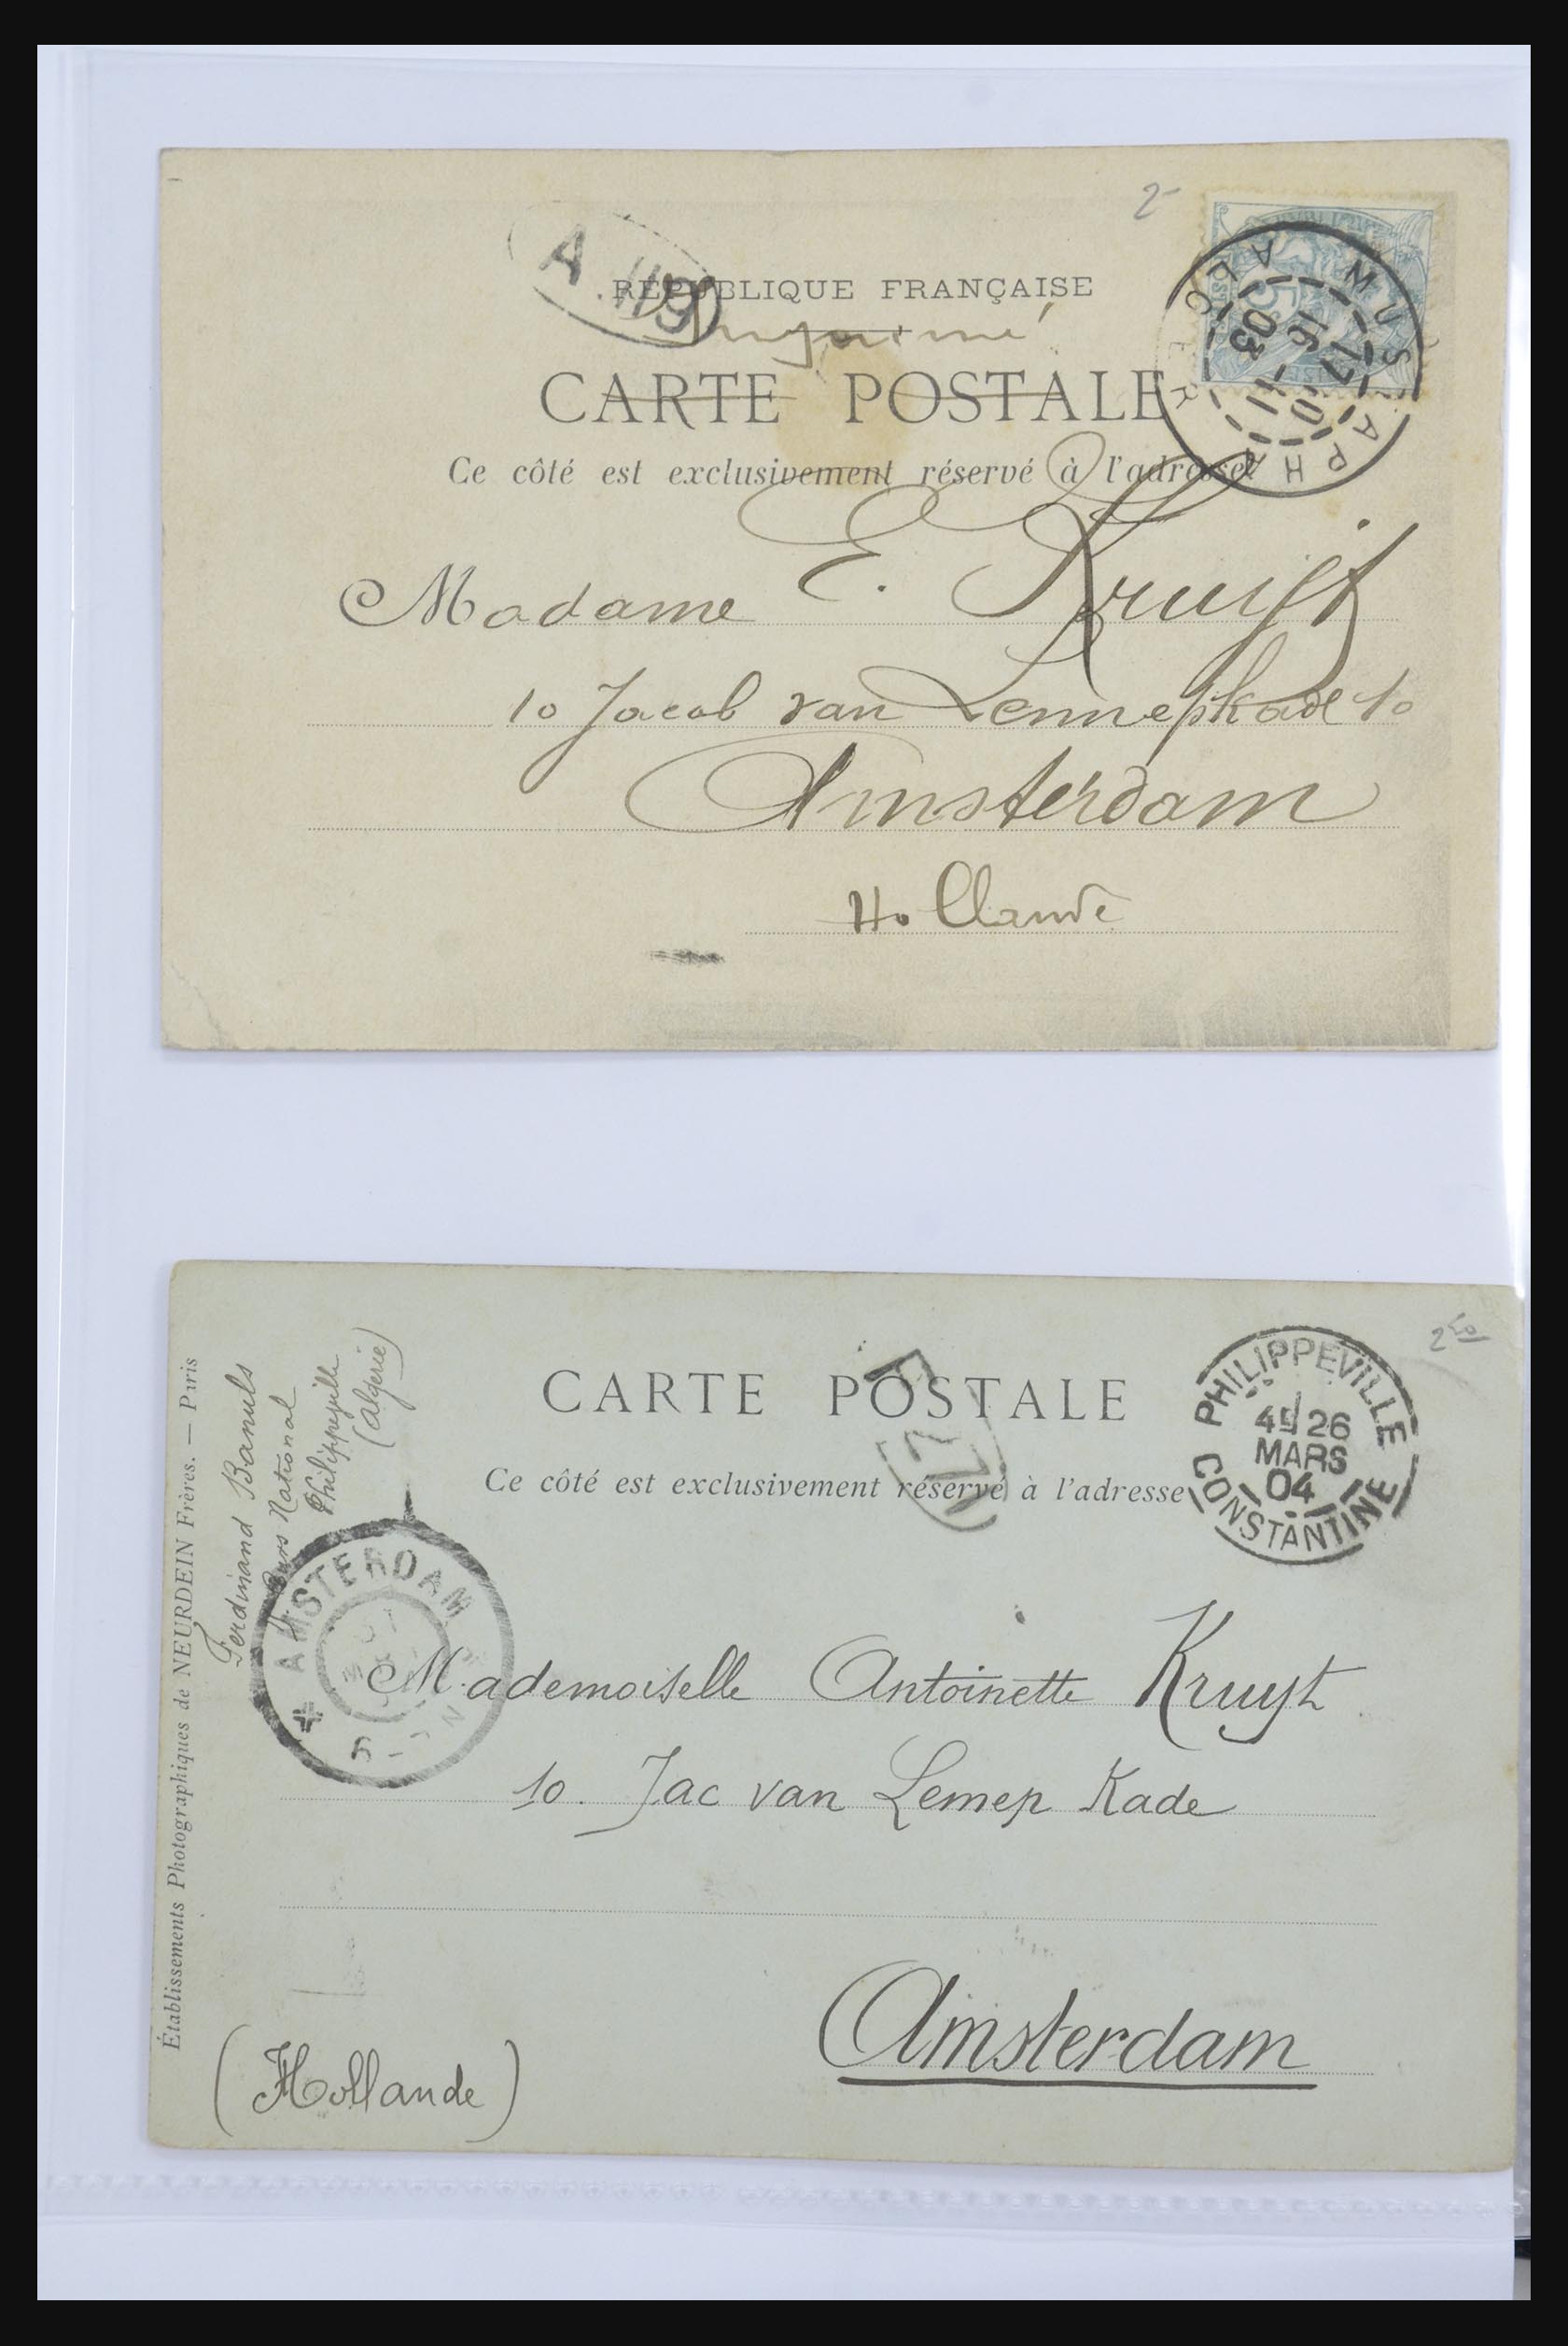 2-
A 119
RÉPUBLIQUE FRANÇAISE
Imprimé
CARTE POSTALE
Ce côté est exclusivement réservé à l'adresse
MUSTAPHA ALGER
17 10
16 -11
03
Madame E. Kruijt
10 Jacob van Lennepkade 10
Amsterdam
Hollande
2 50
CARTE POSTALE
Ce côté est exclusivement réservé à l'adresse
PHILIPPEVILLE
4E 26
MARS
04
CONSTANTINE
Ferdinand Banuls
Cours National
Philippeville
(Algérie)
Établissements Photographiques de NEURDEIN Frères. — Paris
AMSTERDAM
Mademoiselle Antoinette Kruyt
10. Jac van Lennep Kade
Amsterdam
(Hollande)